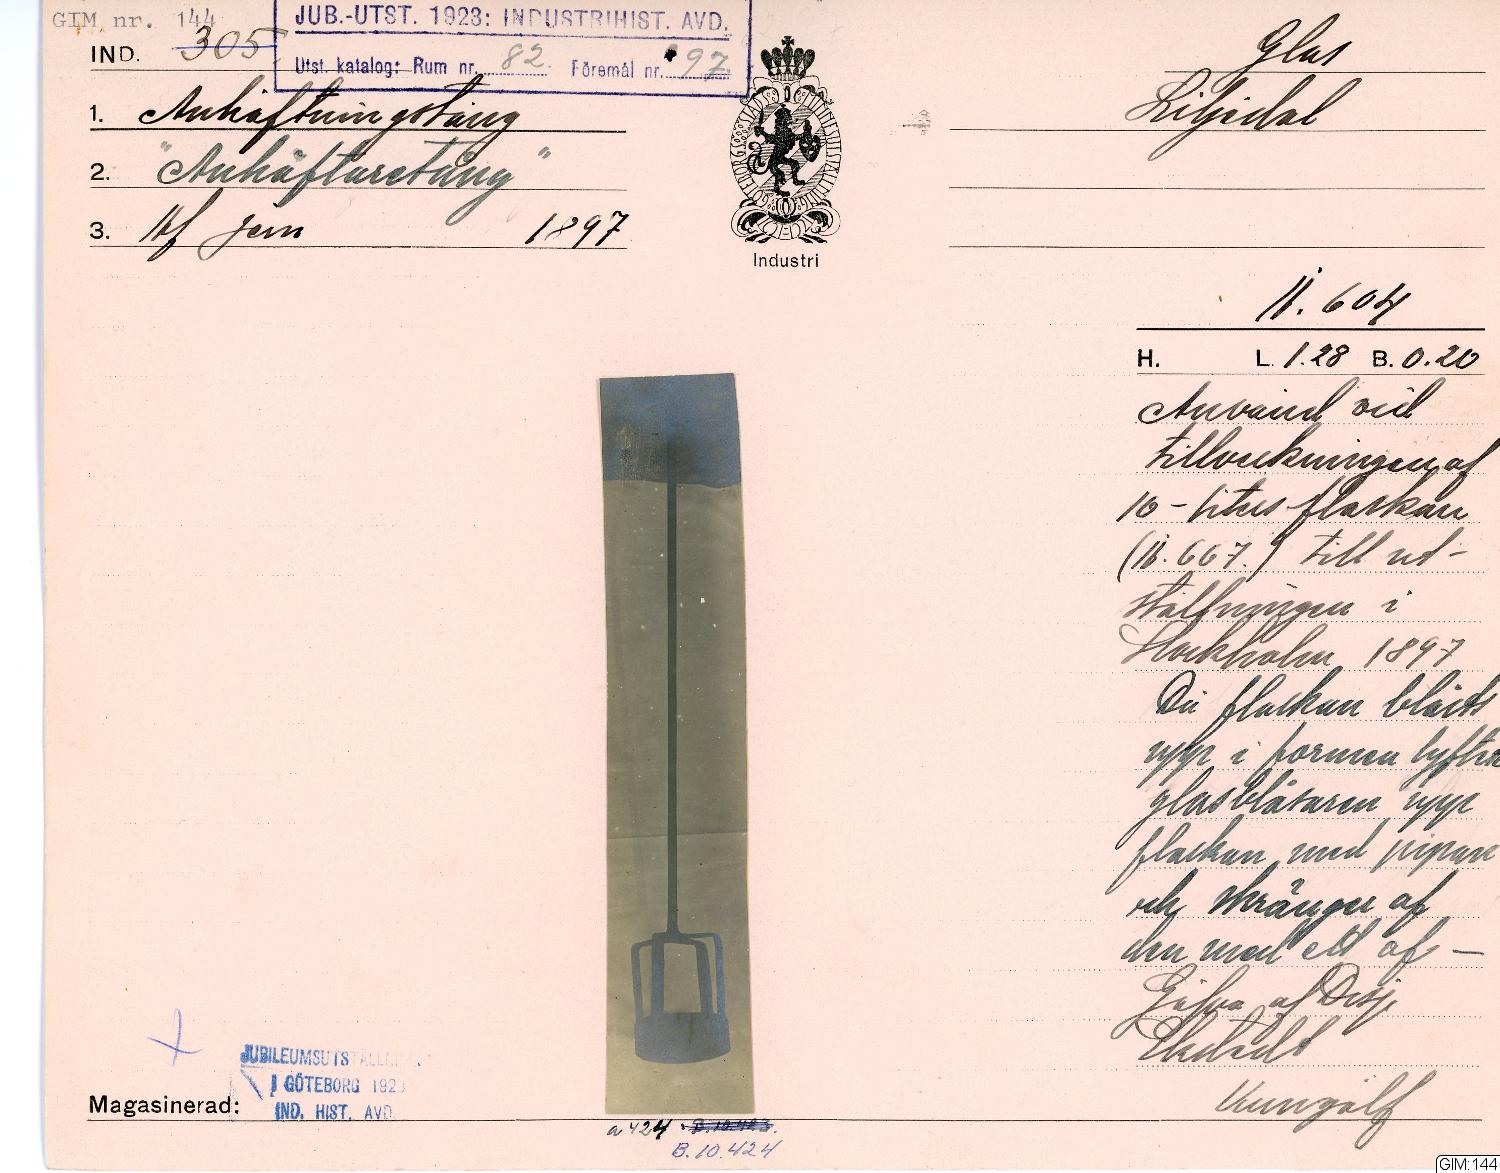 GIM nr. 144
IND. 305
JUB.-UTST. 1923: INDUSTRIHIST. AVD.
Utst. katalog: Rum nr. 82. Föremål nr. 97
1. Anhäftningstång
2. "Anhäftaretång"
3. Af jern 1897
GÖTEBORGS STADS MINNESUTSTÄLLNING
Industri
Glas
Liljedal
N. 604
H. L. 1.28 B. 0.20
Använd vid
tillverkningen af
10-liters flaskan
(N. 667.) till ut-
ställningen i
Stockholm 1897
Då flaskan blåsts
upp i formen lyfter
glasblåsaren upp
flaskan med pipan
och spränger af
den med ett af-
Gåfva af Disp.
Ekstedt
Kungälf
JUBILEUMSUTSTÄLLN
I GÖTEBORG 1923
IND. HIST. AVD.
Magasinerad:
a 424 B.10.423.
B.10.424
GIM:144